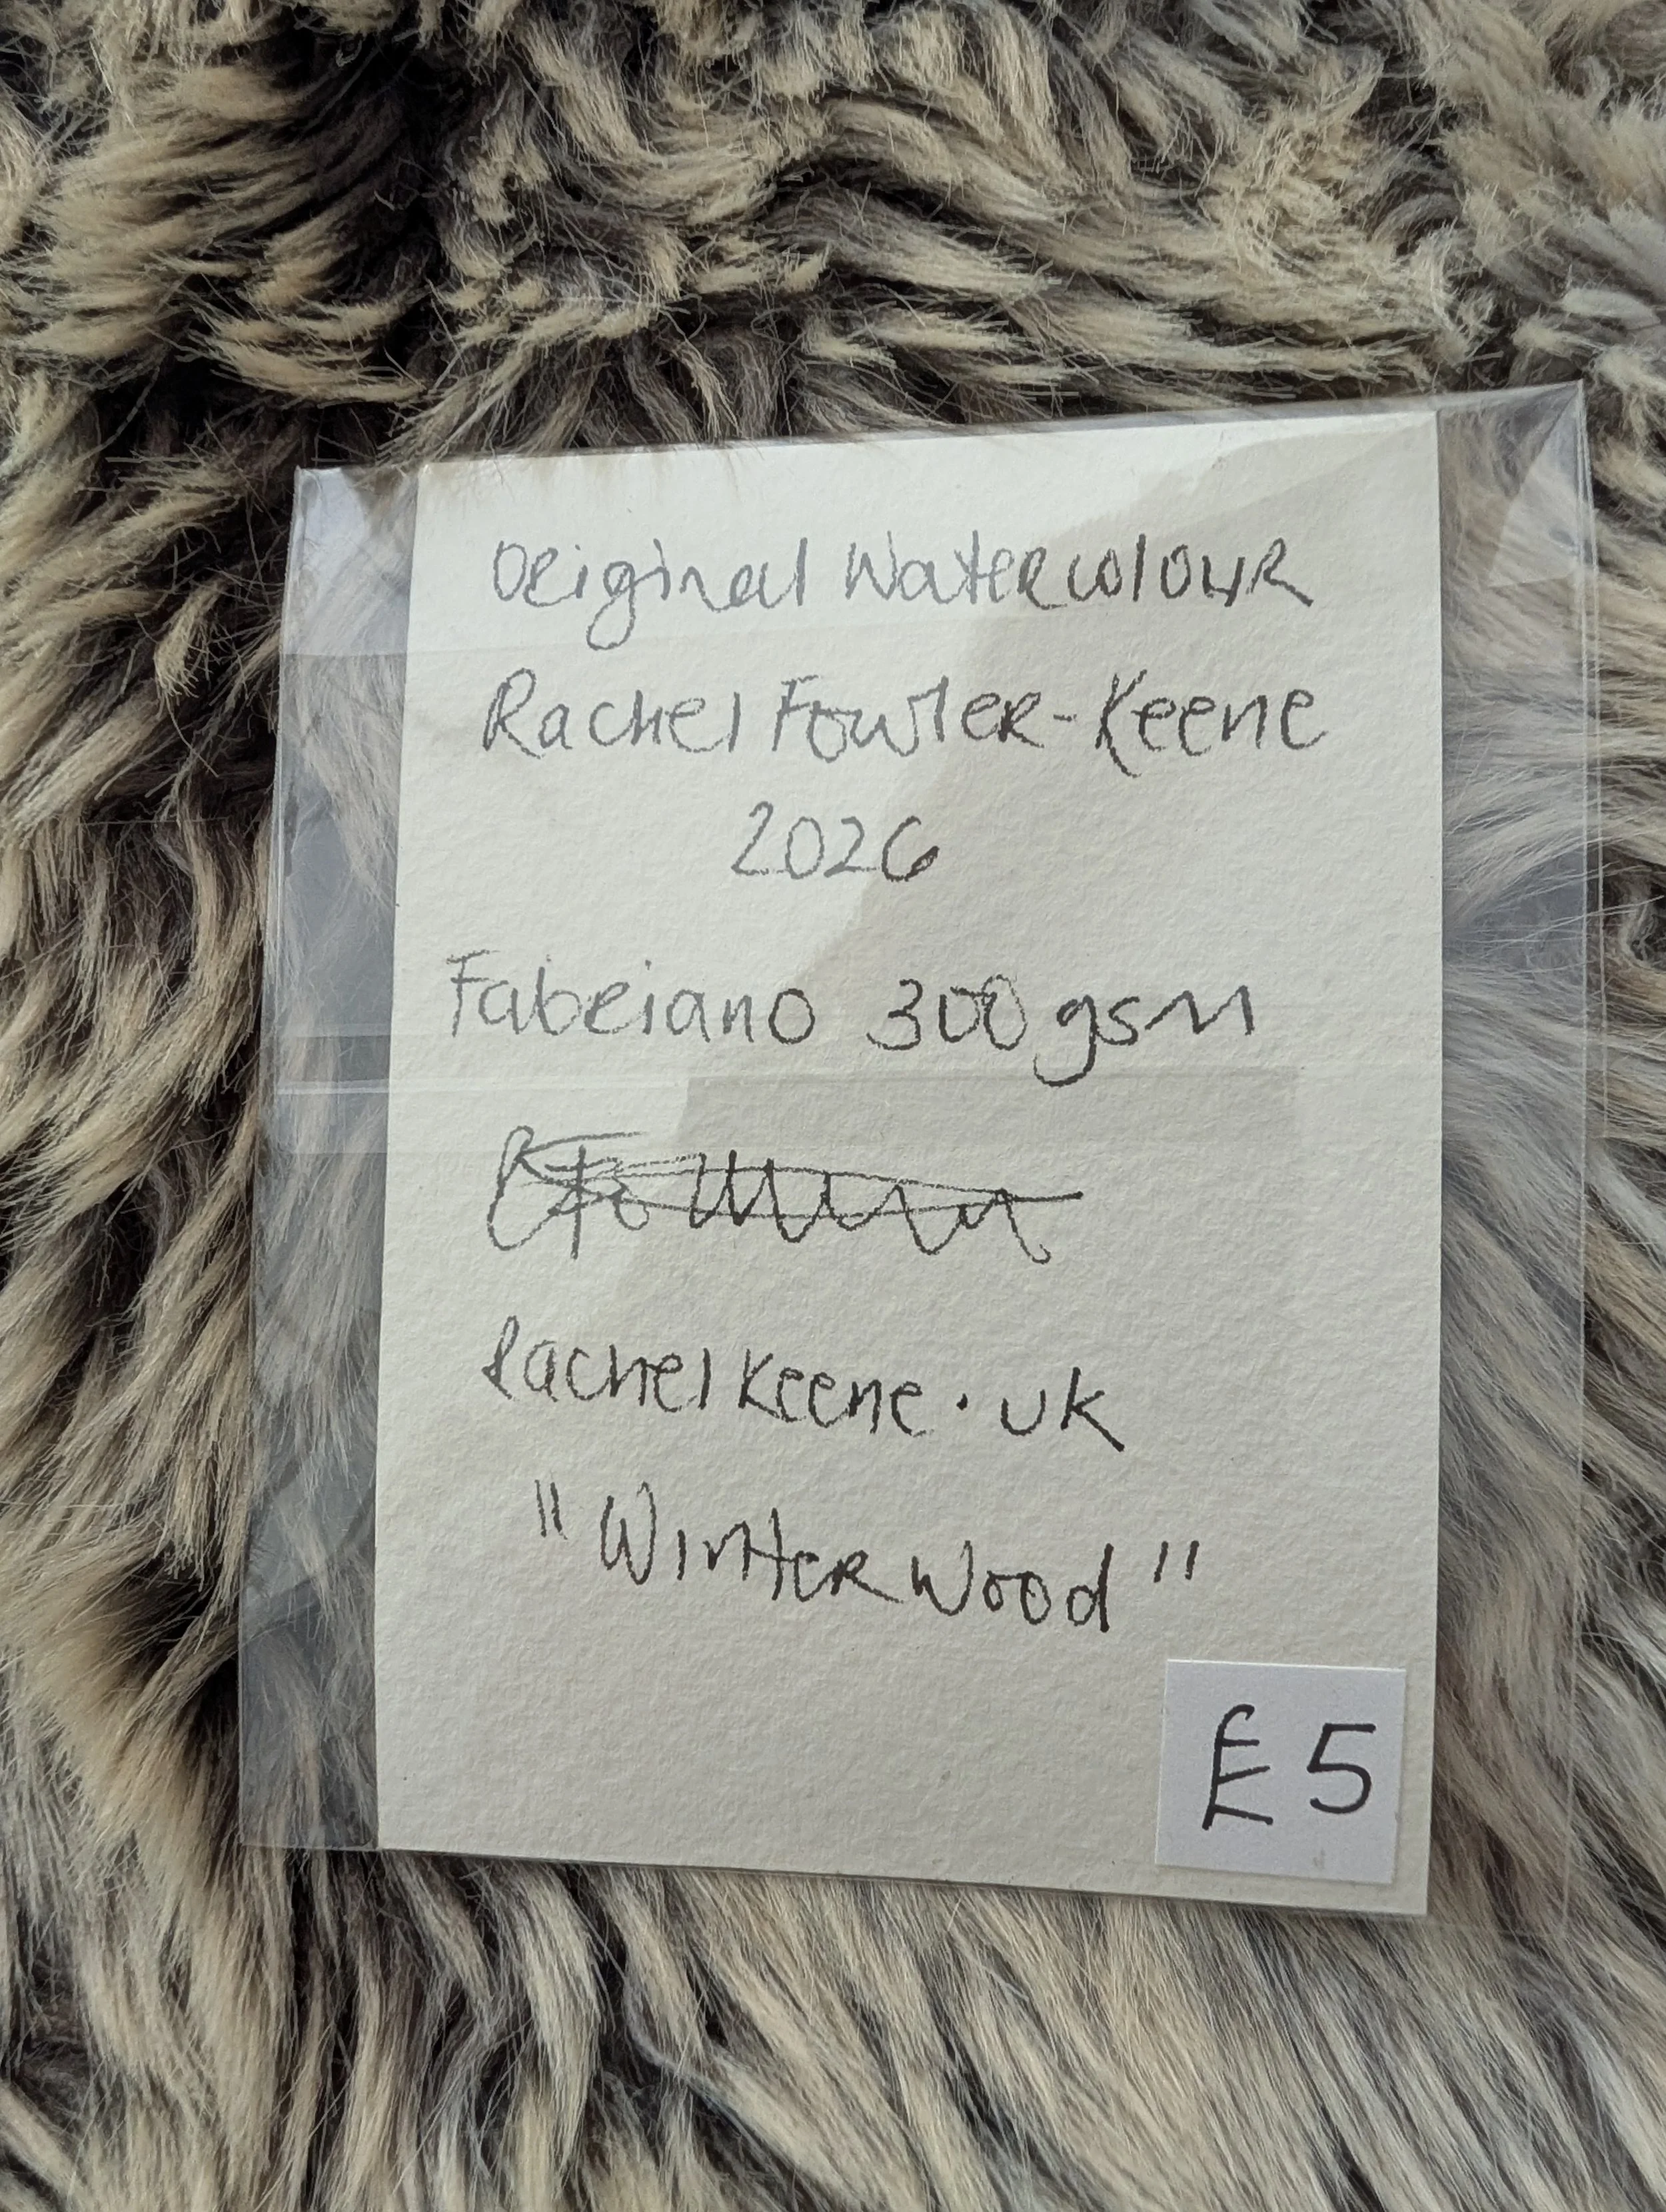 Original Watercolour
Rachel Fowler-Keene
2026
Fabriano 300gsm
RachelKeene.uk
"Winter Wood"
£5